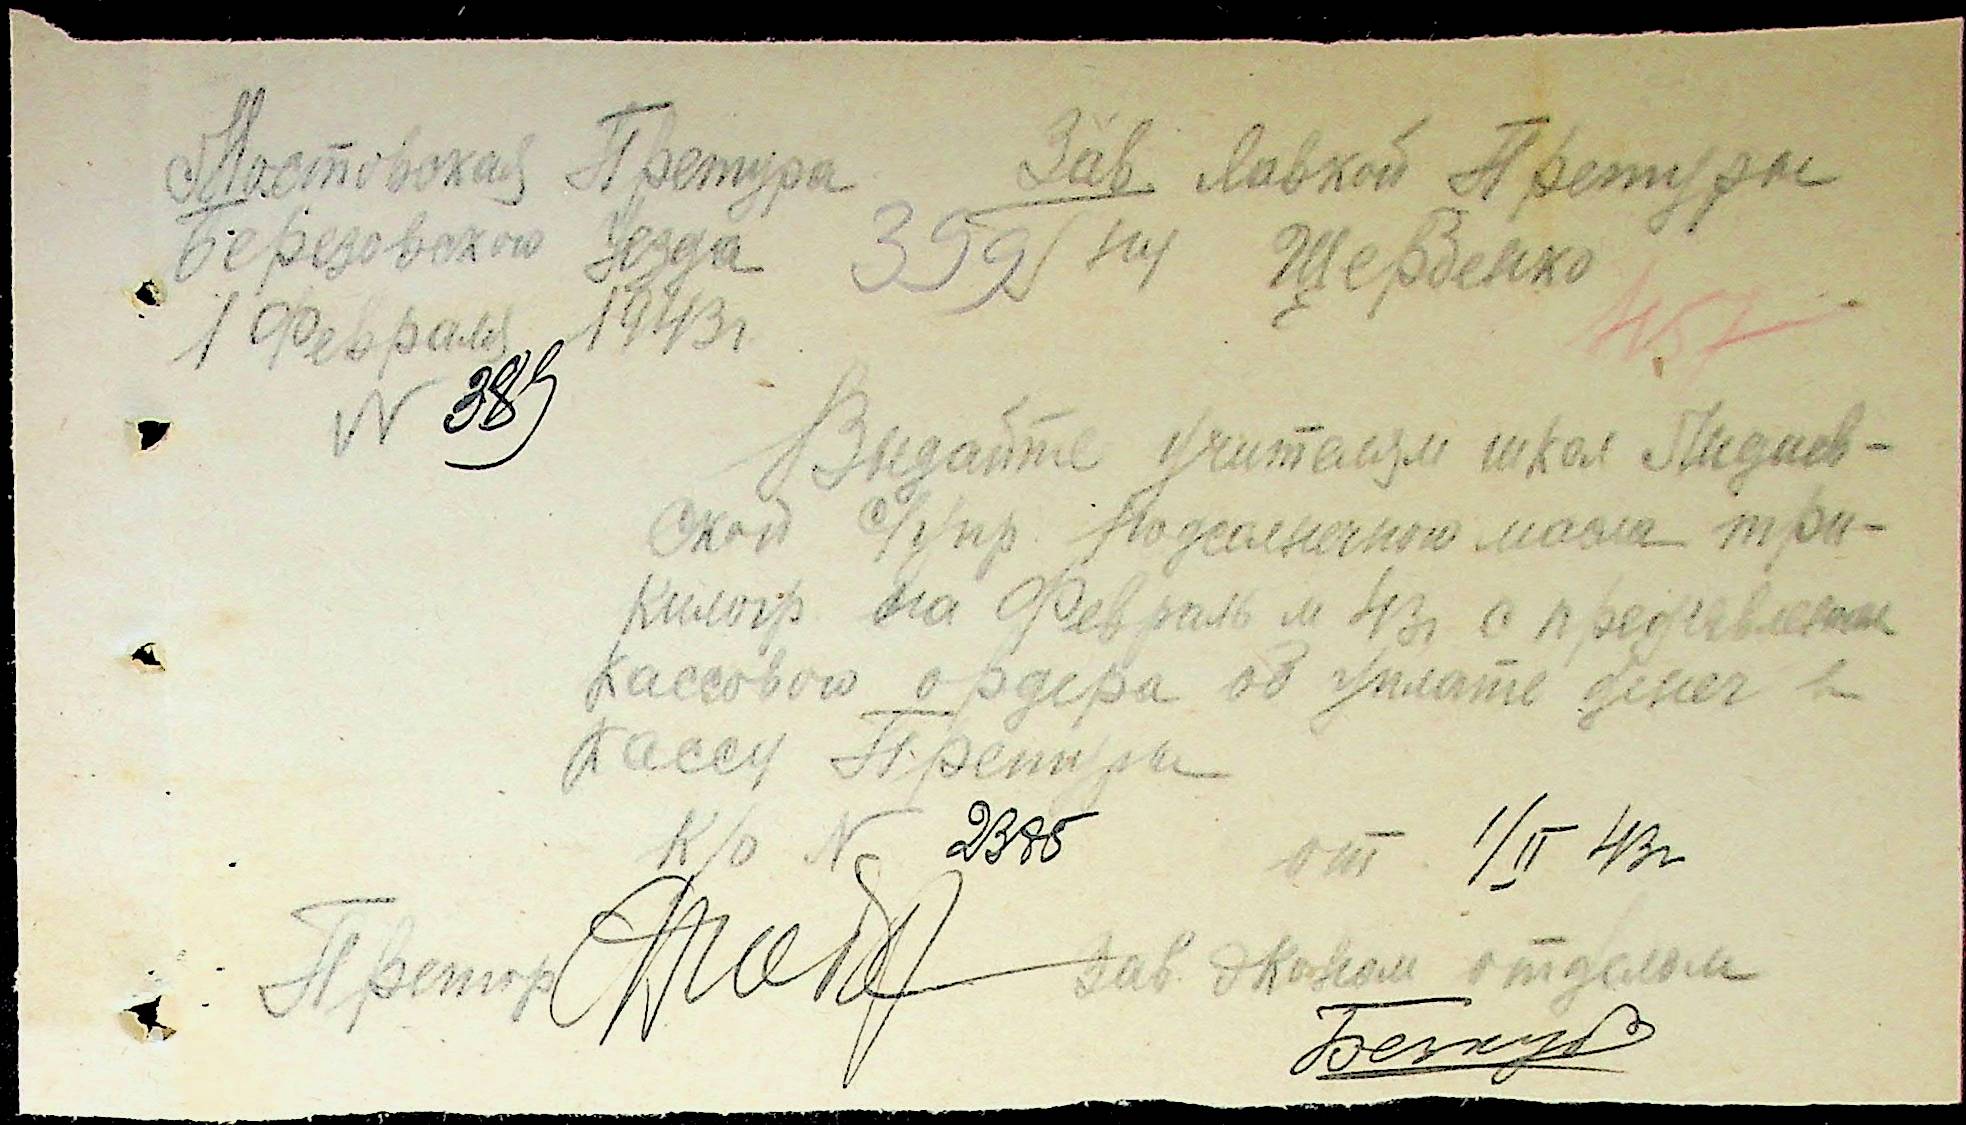 Мостовская Претура
Березовского Уезда
1 Февраля 1943г.
N 389
Зав. Лавкой Претуры
359 Щербенко
457
Выдайте учителям школ
ской с/упр. Подсолнечного масла три
килогр на Февраль м 43г с предъявлением
кассового ордера об уплате денег в
кассу Претуры
К/о N 2385 от 1/II 43г
Претор Зав. Эконом отделом